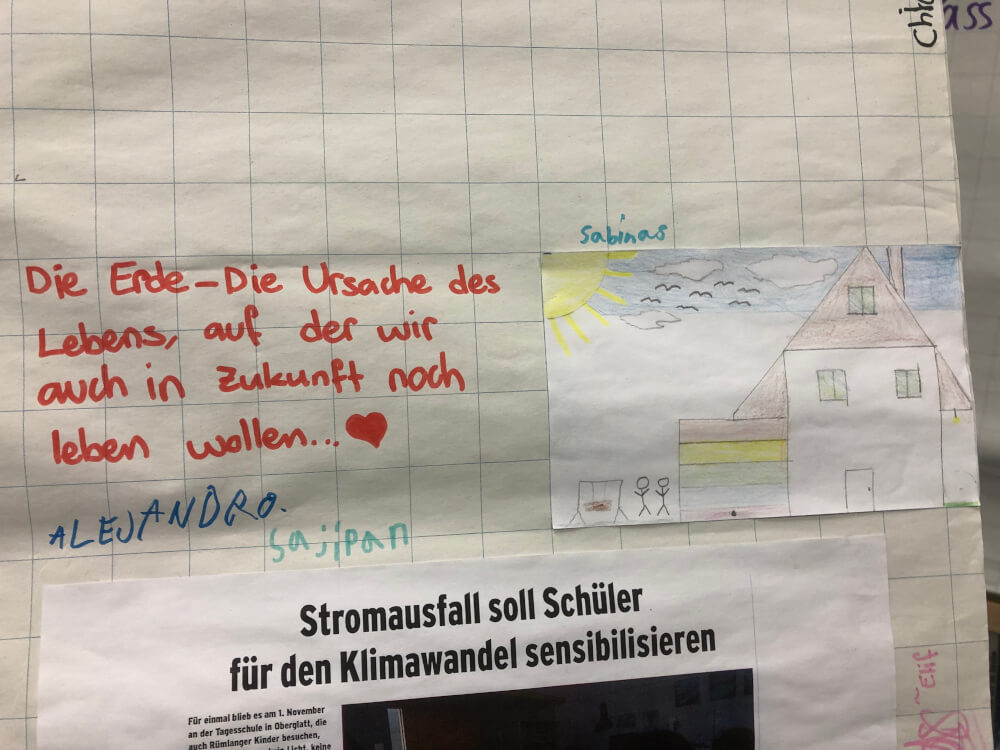 ass
Sabinas
Die Erde – Die Ursache des
Lebens, auf der wir
auch in Zukunft noch
leben wollen...
ALEJANDRO.
sajipan
Stromausfall soll Schüler
für den Klimawandel sensibilisieren
Für einmal blieb es am 1. November
an der Tagesschule in Oberglatt, die
auch Rümlanger Kinder besuchen,
Licht, keine
~Elif